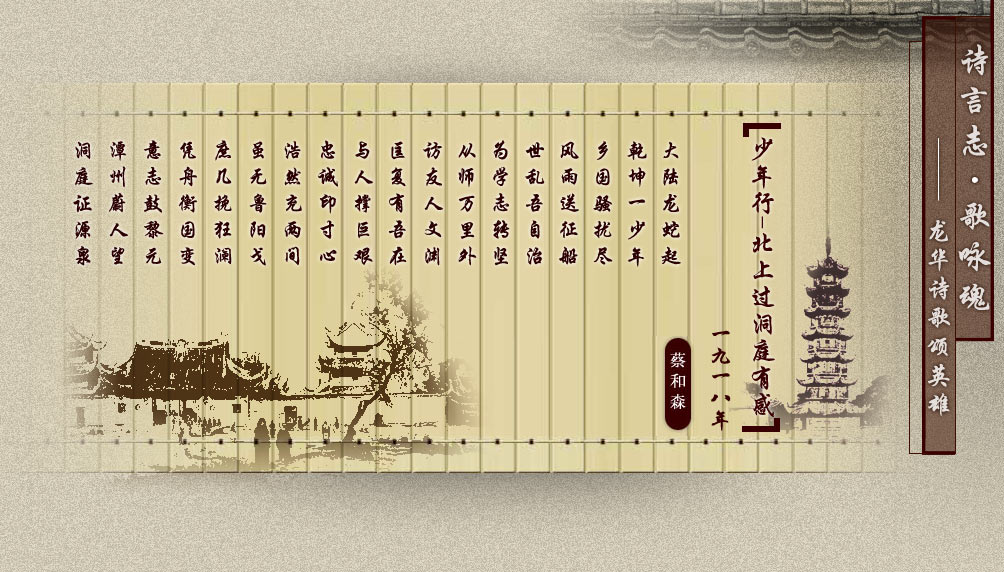 诗言志·歌咏魂
——龙华诗歌颂英雄
少年行—北上过洞庭有感
一九一八年
蔡和森
大陆龙蛇起
乾坤一少年
乡国骚扰尽
风雨送征船
世乱吾自治
为学志转坚
从师万里外
访友人文渊
匡复有吾在
与人撑巨艰
忠诚印寸心
浩然充两间
虽无鲁阳戈
庶几挽狂澜
凭舟衡国变
意志鼓黎元
潭州蔚人望
洞庭证源泉